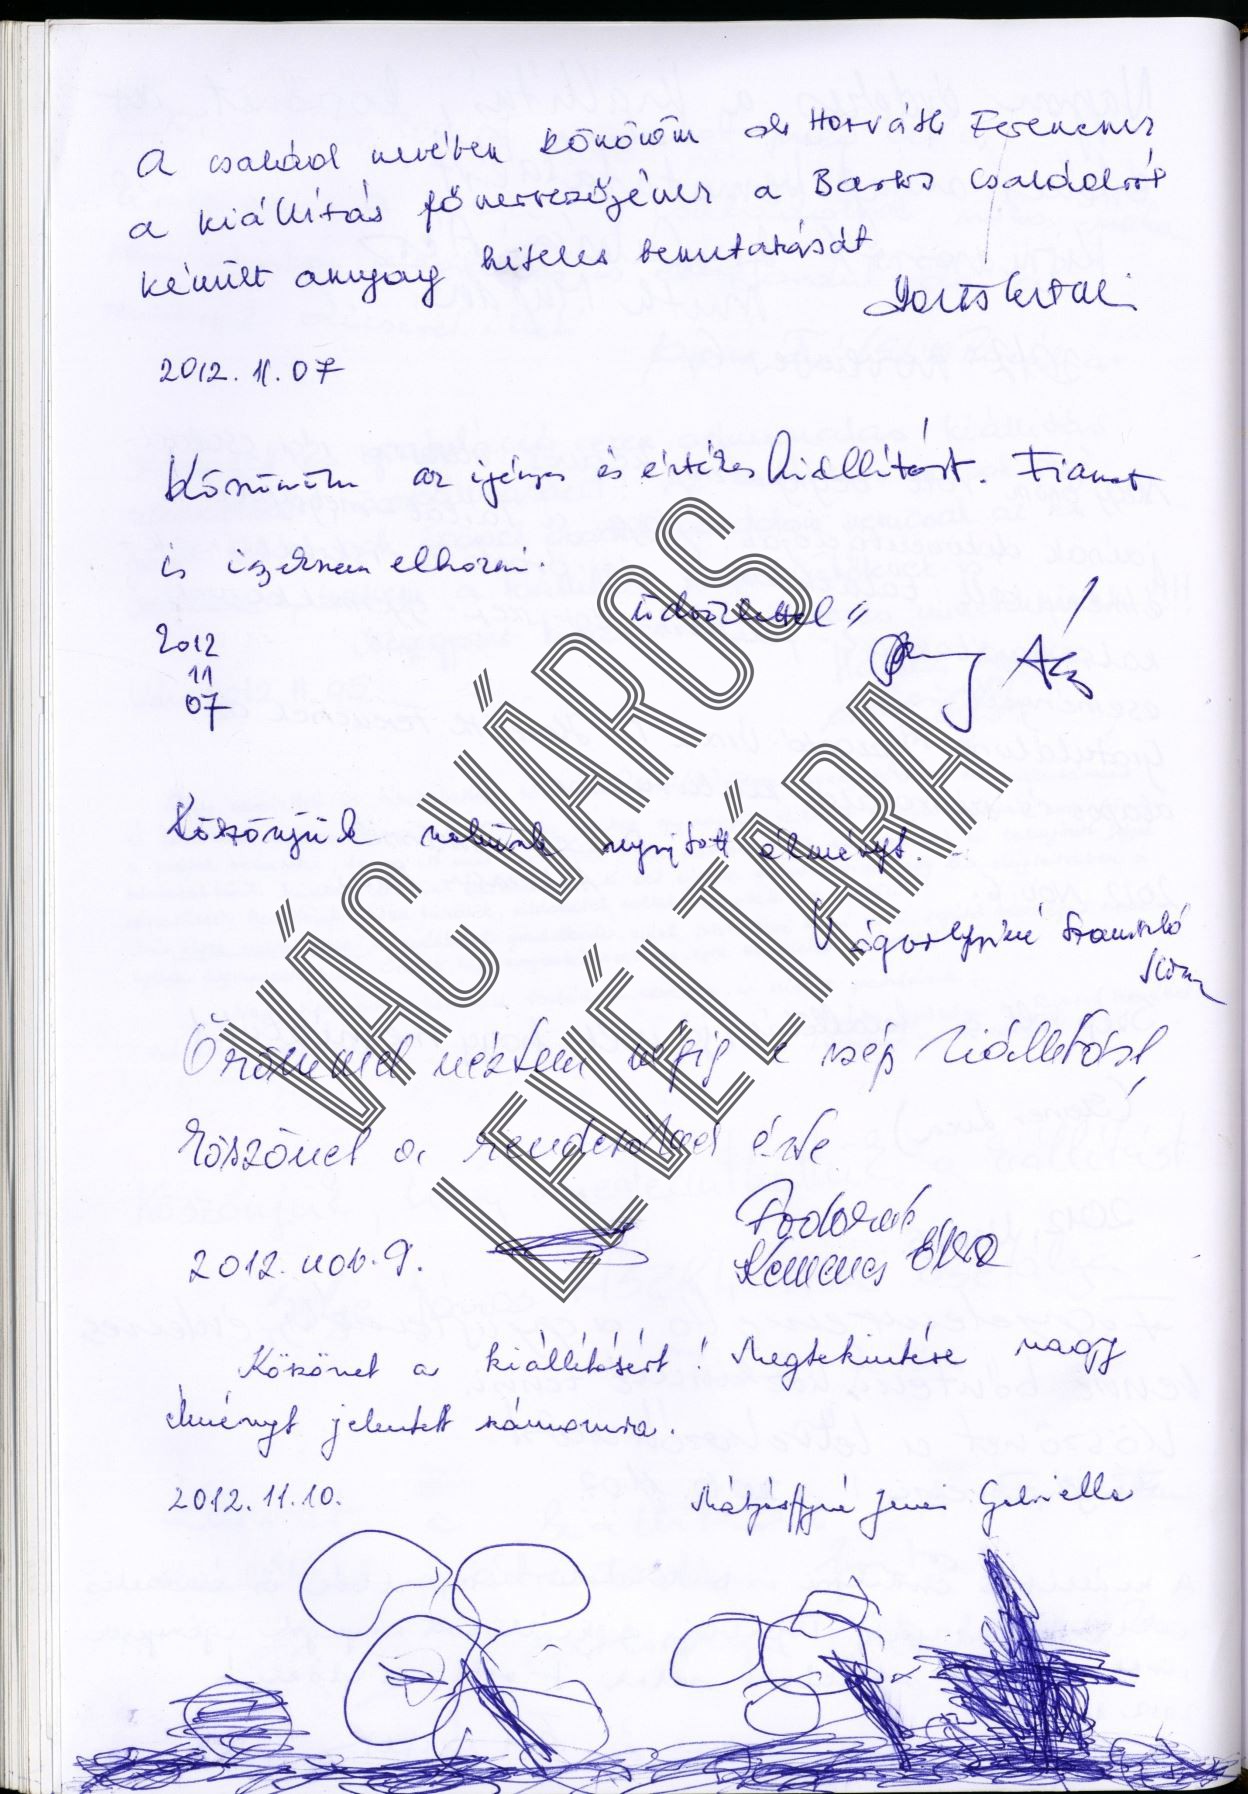 A család nevében köszönöm dr Horváth Ferencnek
a kiállítás főszervezőjének a Bartos családról
készült anyag hiteles bemutatását
2012. 11. 07
Köszönöm az igényes és értékes kiállítást. Fiamat
is igyekszem elhozni.
üdvözlettel
2012
11
07
Köszönjük nekünk nyujtott élményt.
VÁC VÁROS
LEVÉLTÁRA
Örömmel néztem végig a szép kiállítást,
köszönet a rendezőknek érte
2012. nov. 9.
Fodorné
Kemenes Éva
Köszönet a kiállításért! Megtekintése nagy
élményt jelentett számomra.
2012. 11. 10.
Mátyásffyné Jenei Gabriella